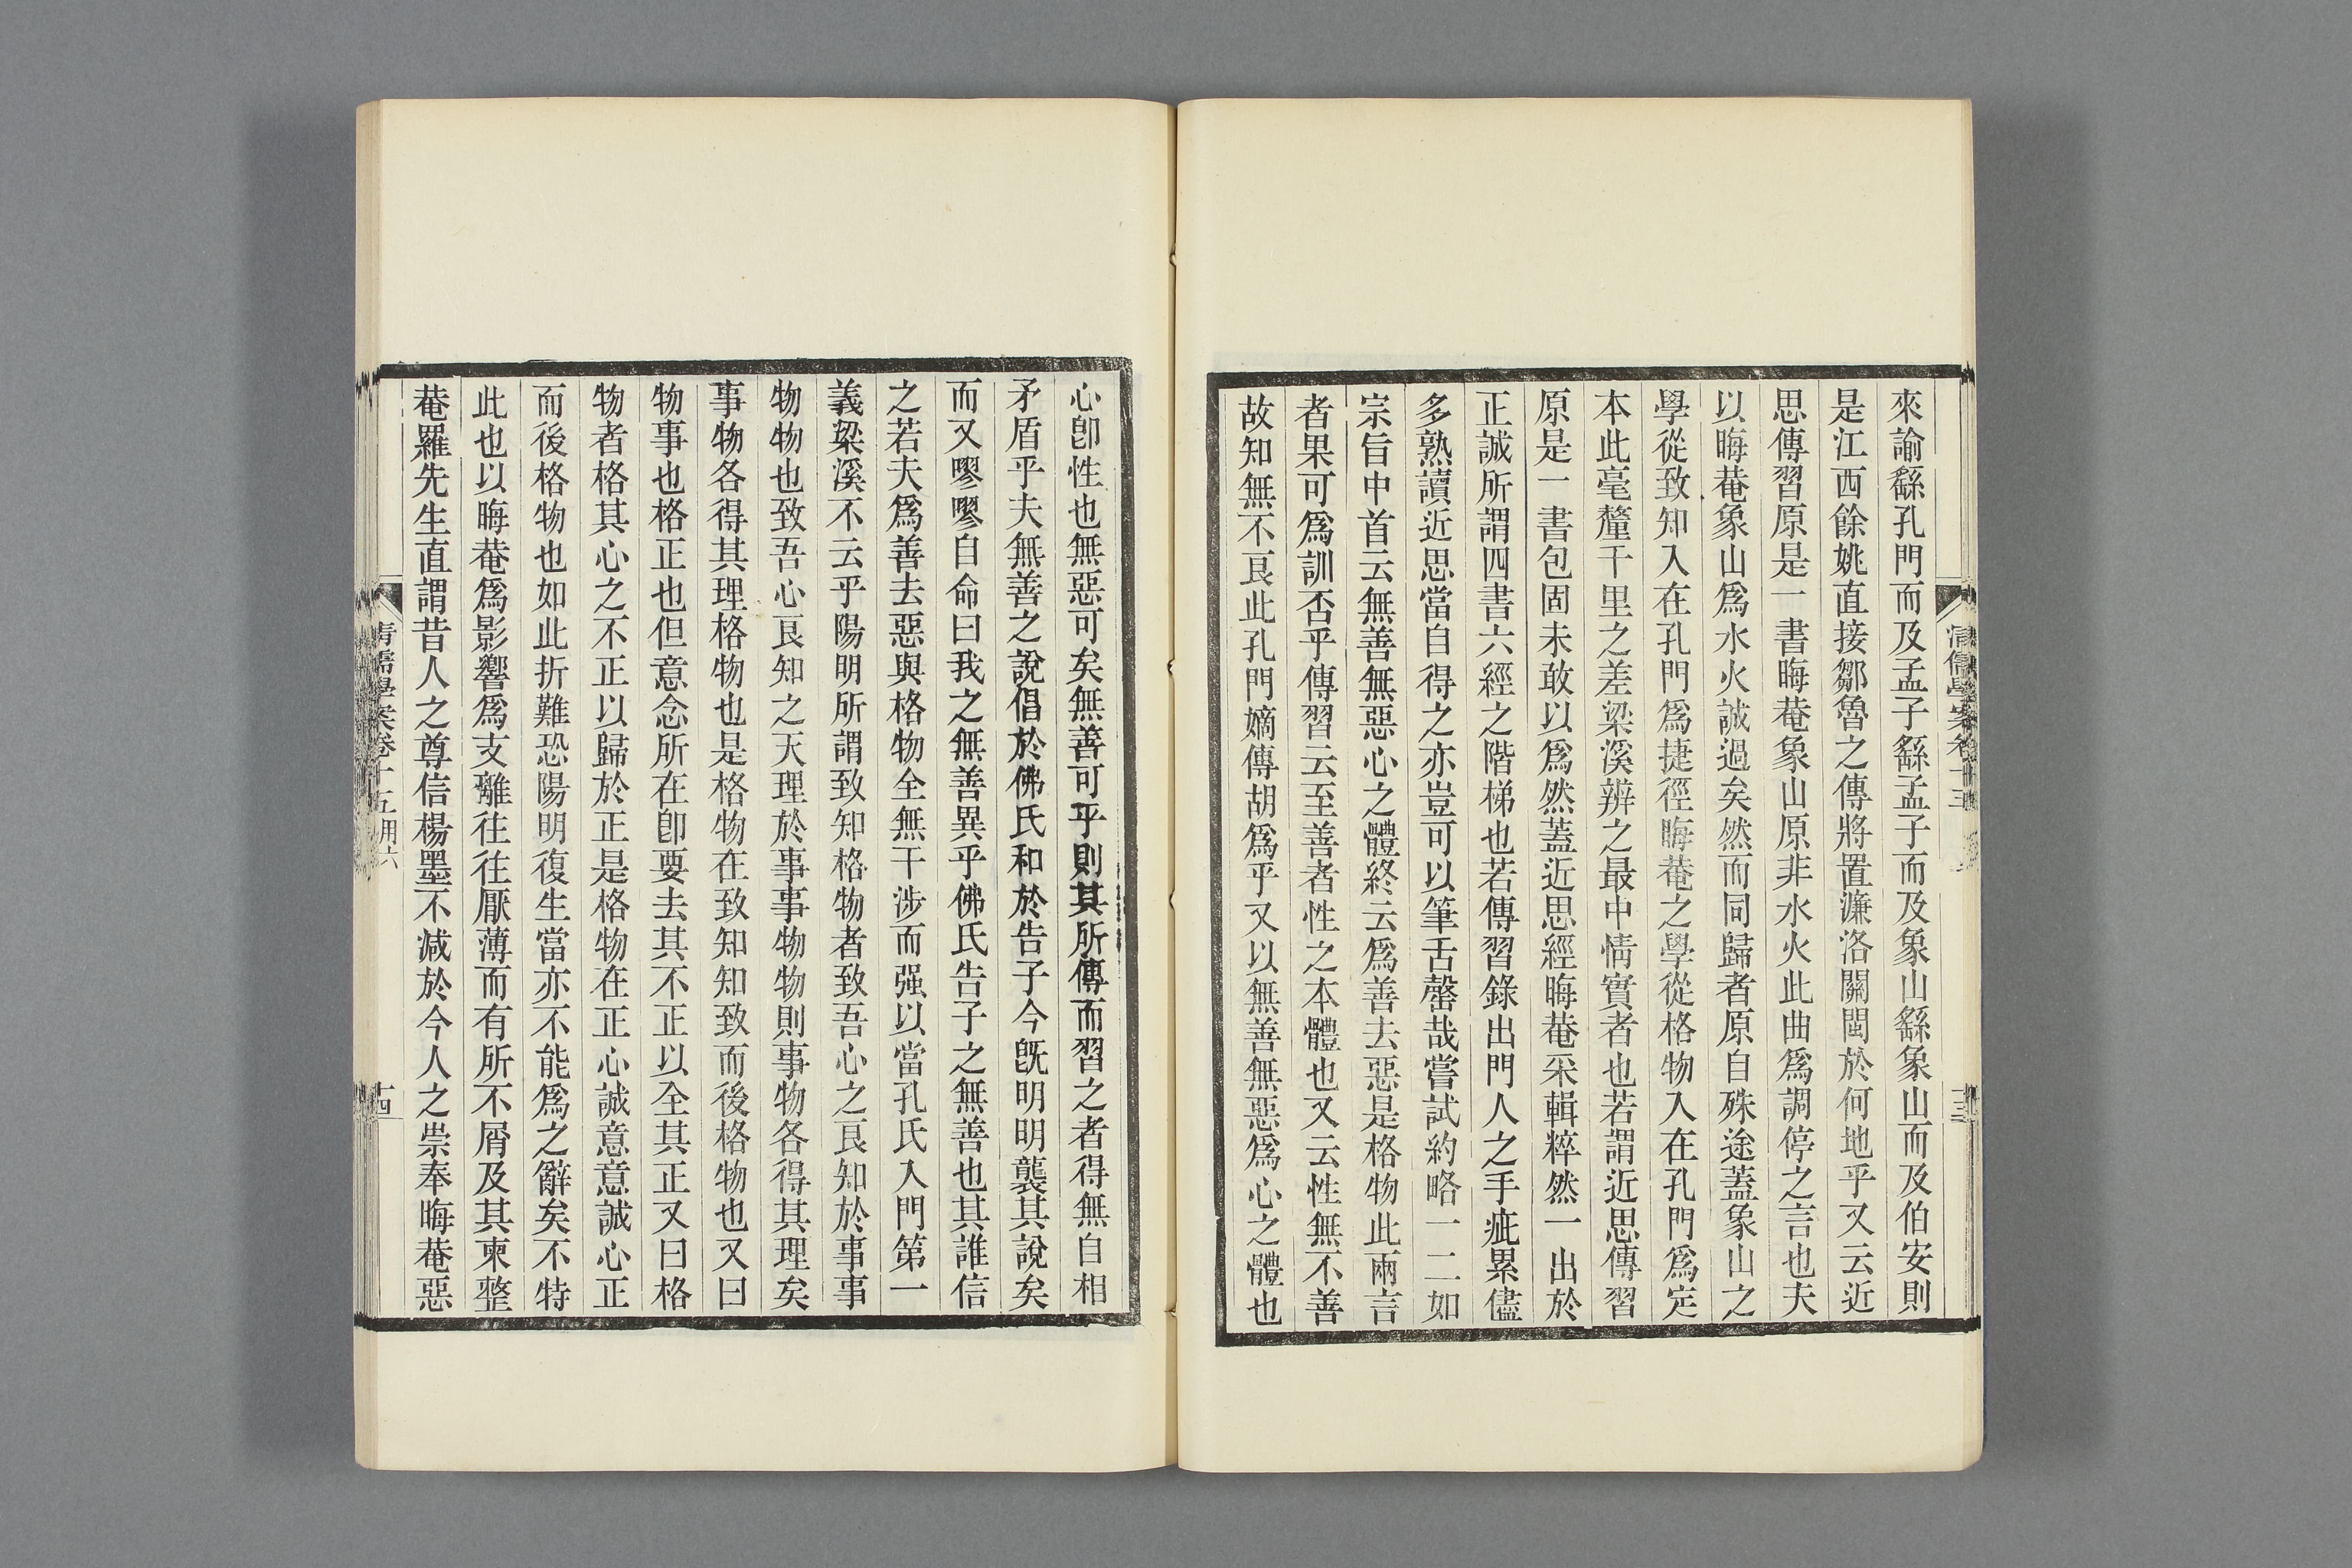 來諭繇孔門而及孟子繇孟子而及象山繇象山而及伯安則
是江西餘姚直接鄒魯之傳將置濂洛關閩於何地乎又云近
思傳習原是一書晦菴象山原非水火此曲爲調停之言也夫
以晦菴象山爲水火誠過矣然而同歸者原自殊途蓋象山之
學從致知入在孔門爲捷徑晦菴之學從格物入在孔門爲定
本此毫釐千里之差梁溪辨之最中情實者也若謂近思傳習
原是一書包固未敢以爲然蓋近思經晦菴采輯粹然一出於
正誠所謂四書六經之階梯也若傳習錄出門人之手疵累儘
多熟讀近思當自得之亦豈可以筆舌罄哉嘗試約略一二如
宗旨中首云無善無惡心之體終云爲善去惡是格物此兩言
者果可爲訓否乎傳習云至善者性之本體也又云性無不善
故知無不良此孔門嫡傳胡爲乎又以無善無惡爲心之體也
心卽性也無惡可矣無善可乎則其所傳而習之者得無自相
矛盾乎夫無善之說倡於佛氏和於告子今旣明明襲其說矣
而又嘐嘐自命曰我之無善異乎佛氏告子之無善也其誰信
之若夫爲善去惡與格物全無干涉而强以當孔氏入門第一
義梁溪不云乎陽明所謂致知格物者致吾心之良知於事事
物物也致吾心良知之天理於事事物物則事物各得其理矣
事物各得其理格物也是格物在致知知致而後格物也又曰
物事也格正也但意念所在卽要去其不正以全其正又曰格
物者格其心之不正以歸於正是格物在正心誠意意誠心正
而後格物也如此折難恐陽明復生當亦不能爲之辭矣不特
此也以晦菴爲影響爲支離往往厭薄而有所不屑及其柬整
菴羅先生直謂昔人之尊信楊墨不減於今人之崇奉晦菴惡
清儒學案卷十五用六
十四